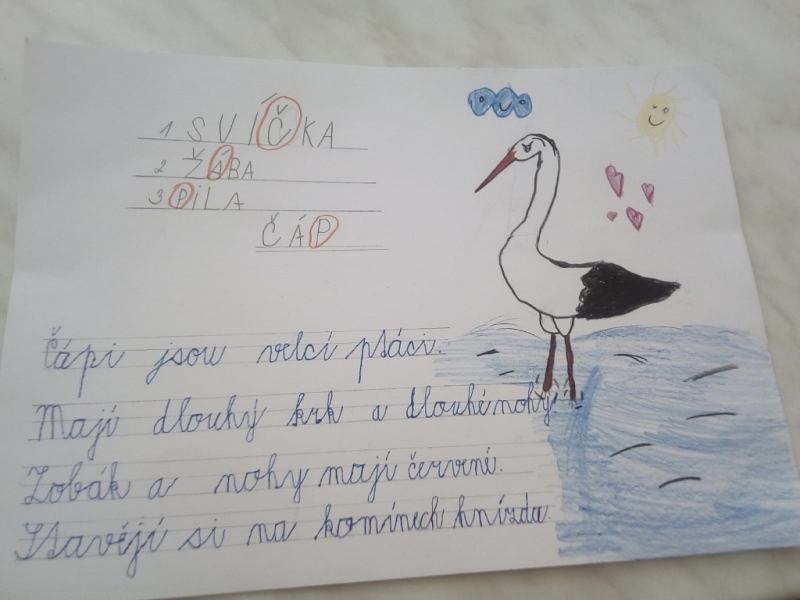 1 SVÍČKA
2 ŽÁBA
3 PILA
ČÁP
Čápi jsou velcí ptáci.
Mají dlouhý krk a dlouhé nohy.
Zobák a nohy mají červené.
Stavějí si na komínech hnízda.